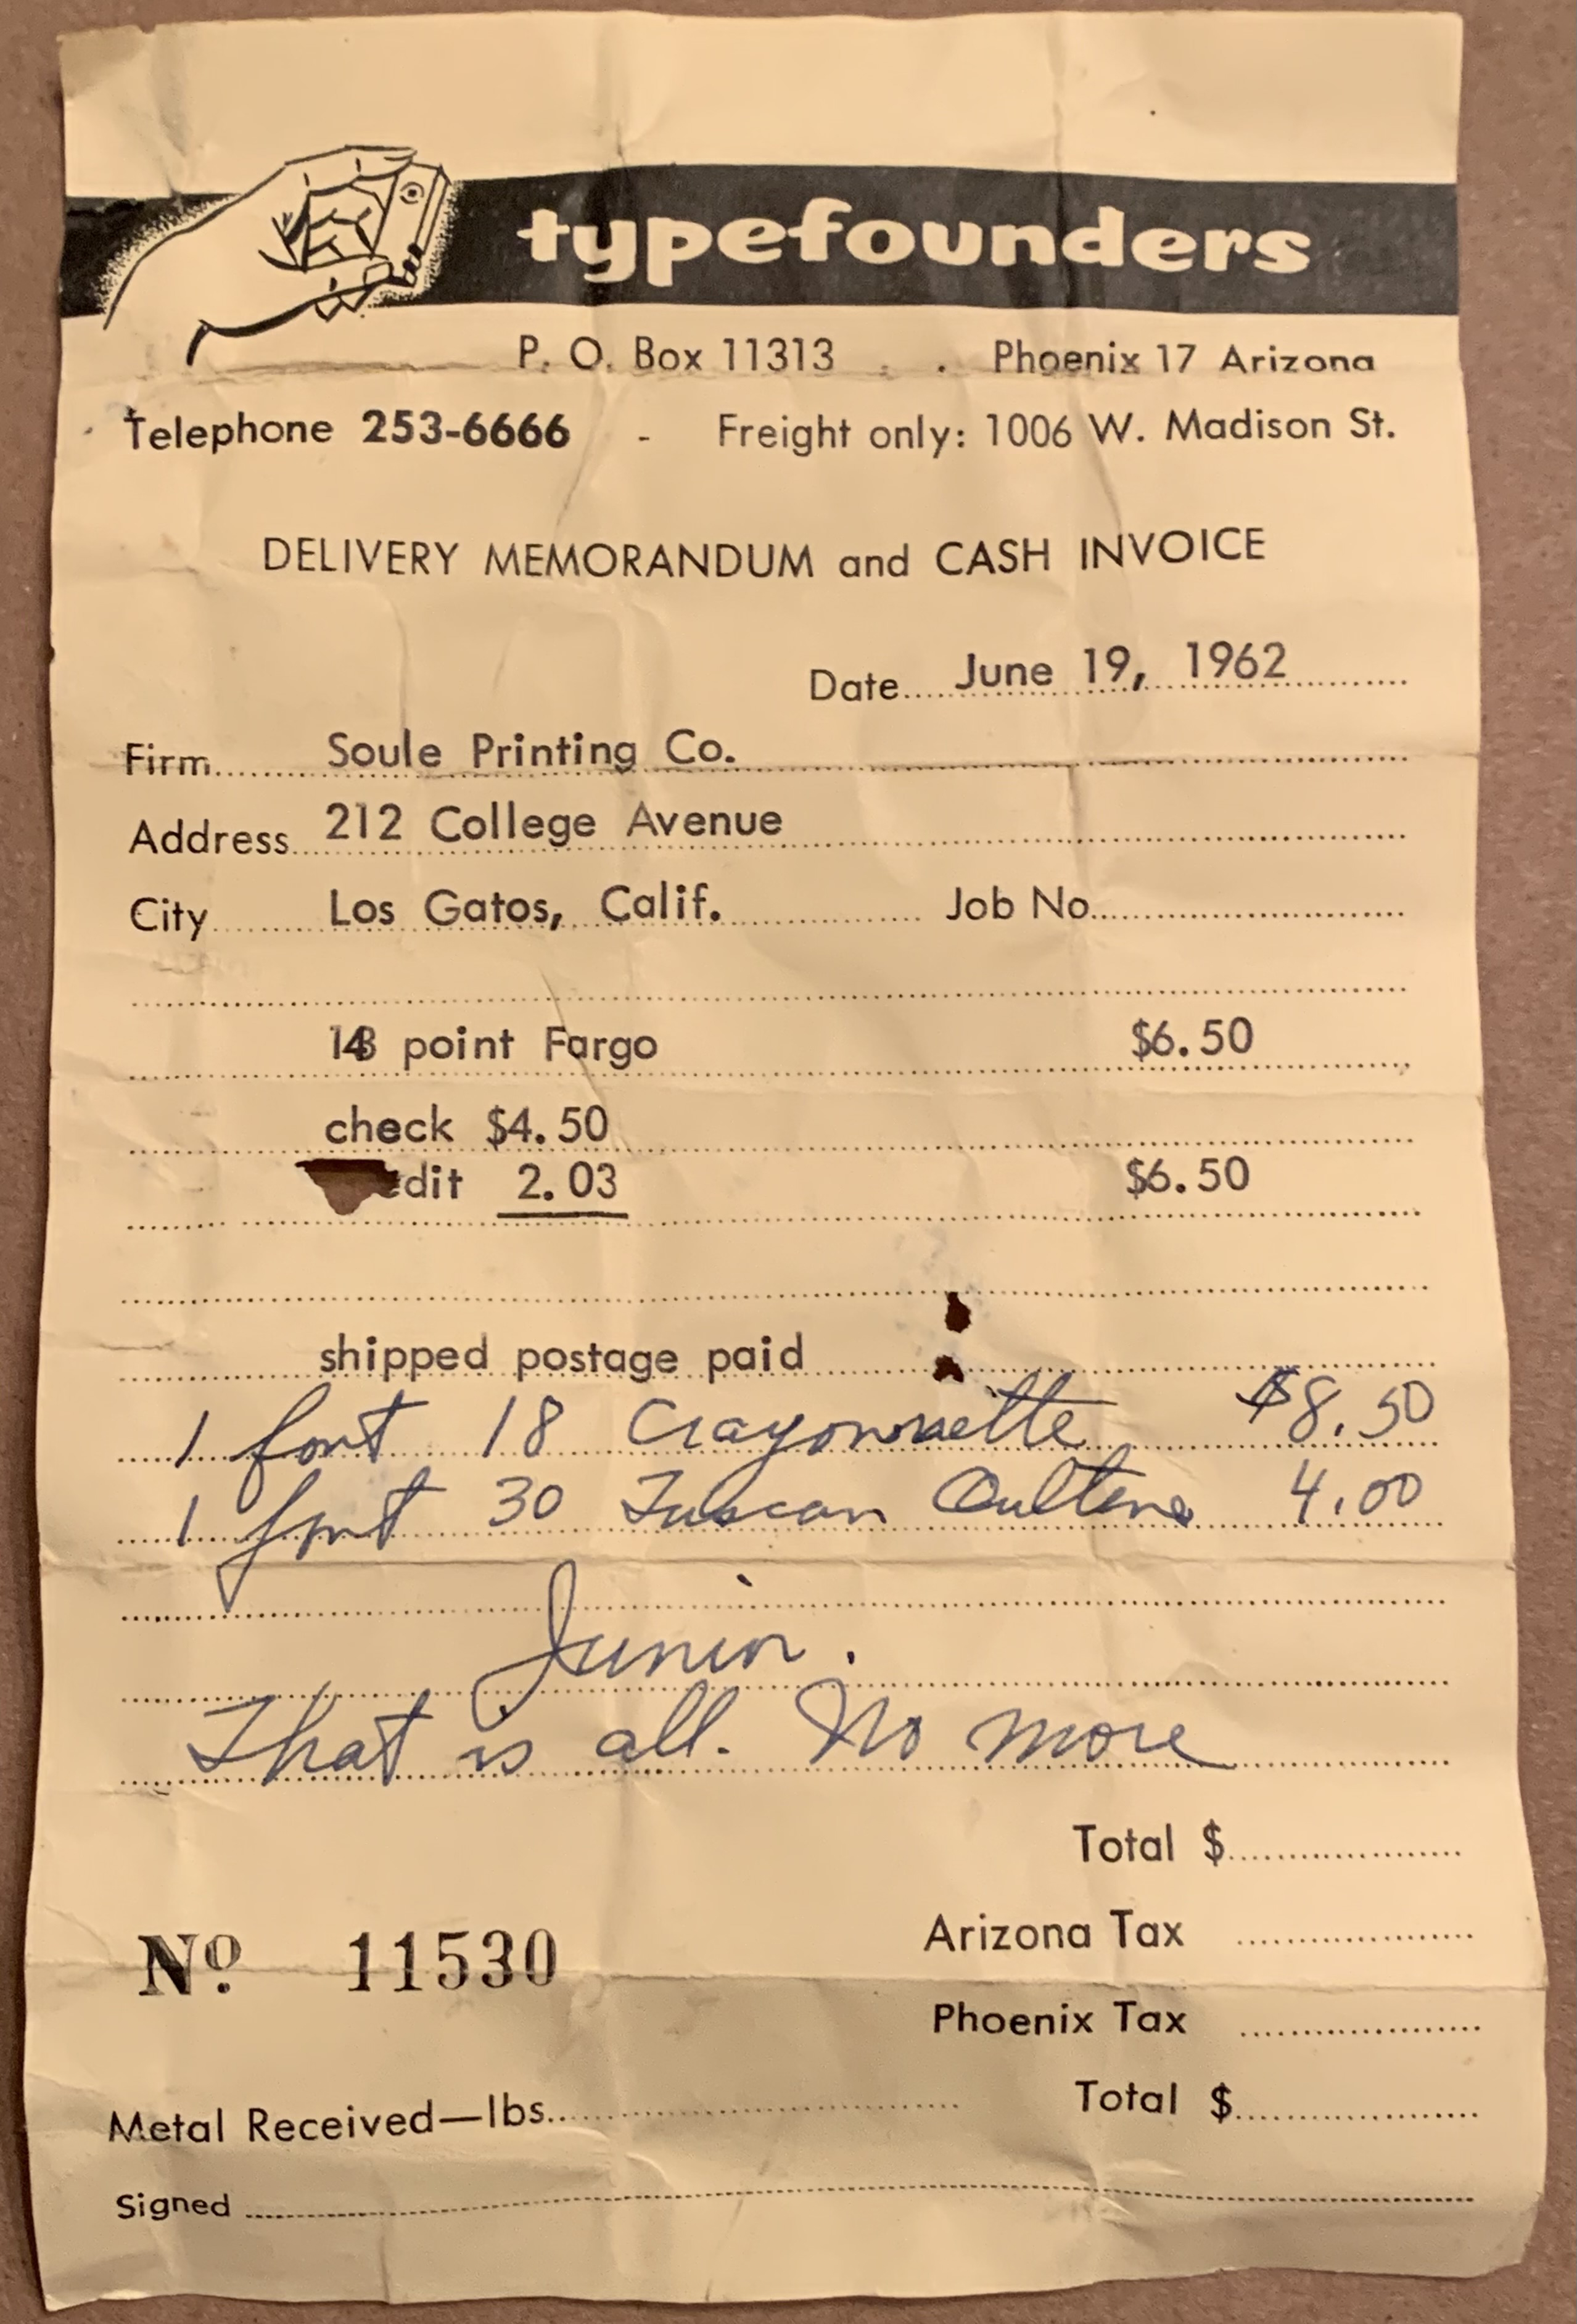 typefounders
P. O. Box 11313 . Phoenix 17 Arizona
Telephone 253-6666 - Freight only: 1006 W. Madison St.
DELIVERY MEMORANDUM and CASH INVOICE
Date June 19, 1962
Firm Soule Printing Co.
Address 212 College Avenue
City Los Gatos, Calif. Job No.
point Fargo $6.50
check $4.50
edit 2.03 $6.50
shipped postage paid
1 font 18 Crayonnette $8.50
1 font 30 Tuscan 4.00
Junior.
That is all. No more
Total $
Arizona Tax
No. 11530
Phoenix Tax
Metal Received—lbs. Total $
Signed